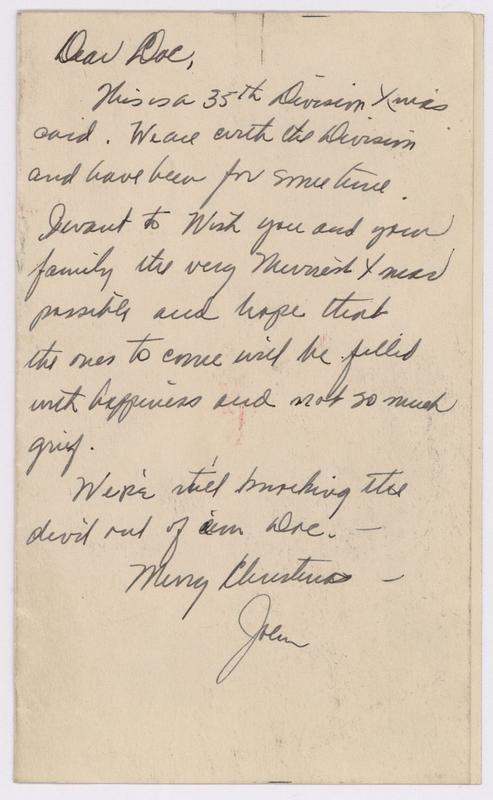 Dear Doc,
This is a 35th Division Xmas
card. We are with the Division
and have been for sometime.
I want to Wish you and your
family the very Merriest Xmas
possible and hope that
the ones to come will be filled
with happiness and not so much
grief.
We're still knocking the
devil out of em Doc. —
Merry Christmas —
John